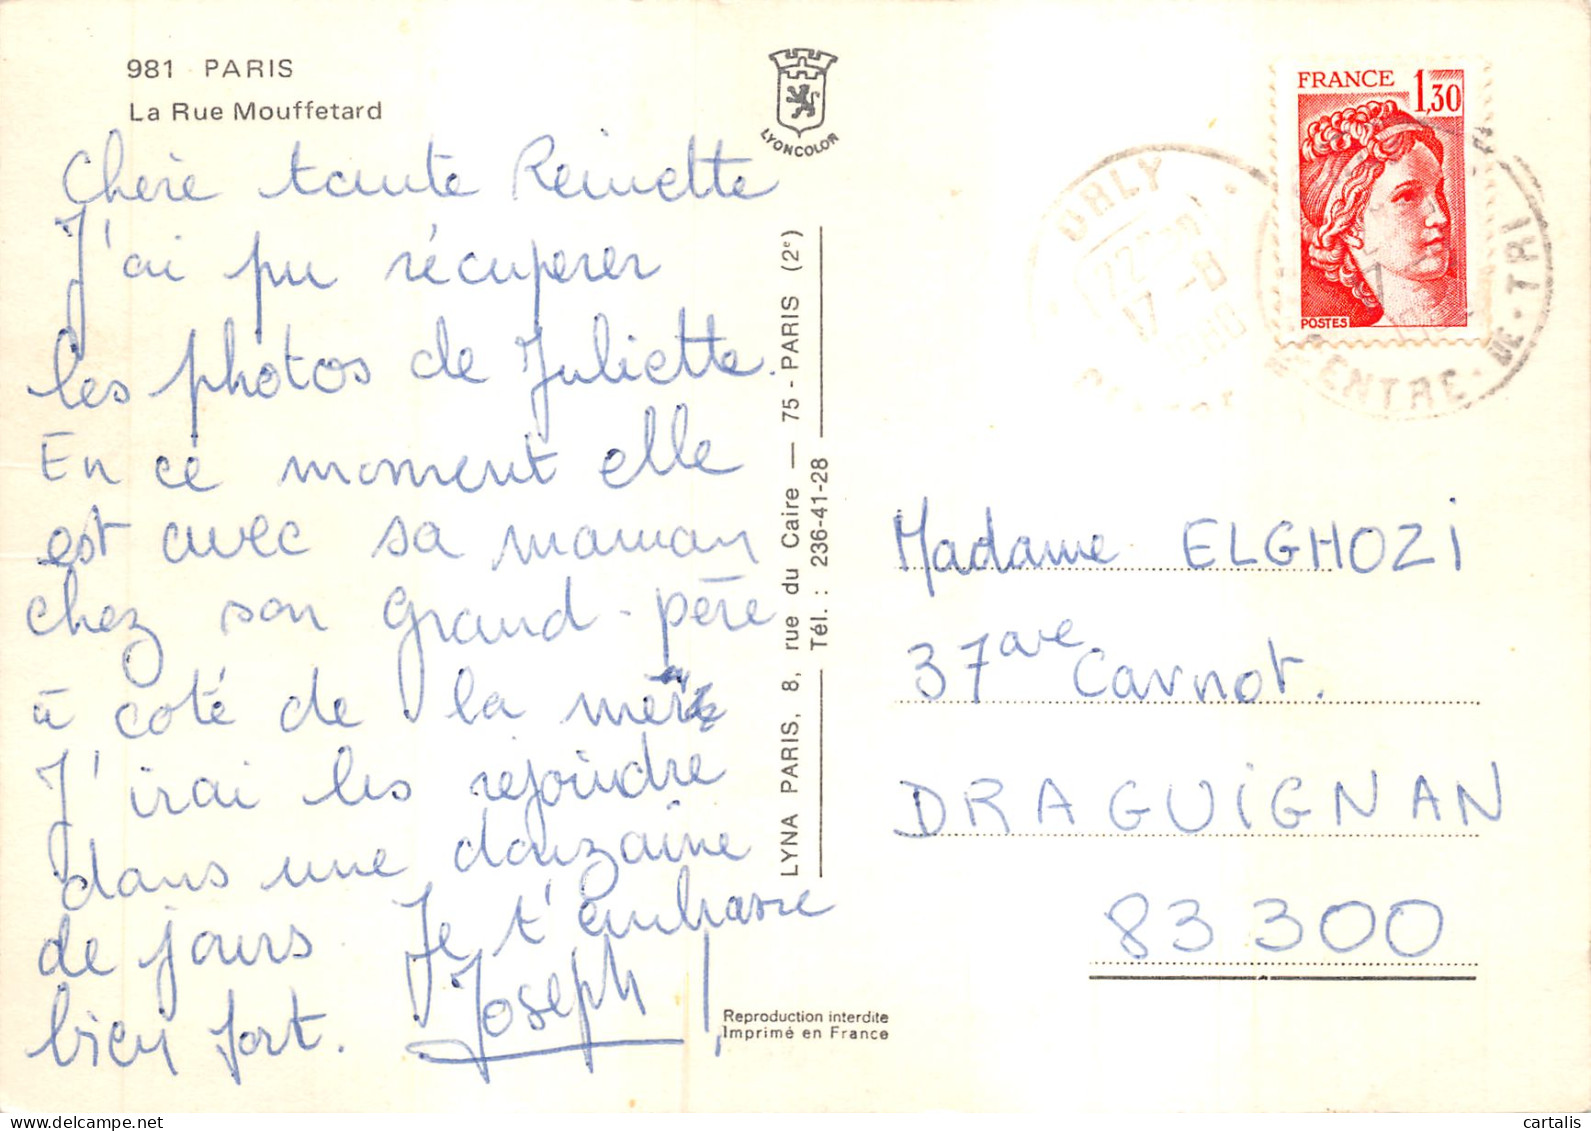 981 - PARIS
La Rue Mouffetard
LYONCOLOR
Chère tante Reinette
J'ai pu récuperer
les photos de Juliette.
En ce moment elle
est avec sa maman
chez son grand-père
à coté de la mère
J'irai les rejoindre
dans une douzaine
de jours Je t'embrasse
bien fort. Joseph
LYNA PARIS, 8, rue du Caire — 75 - PARIS (2e)
Tél. : 236-41-28
Reproduction interdite
Imprimé en France
FRANCE 1,30
POSTES
ORLY
CENTRE • DE • TRI
Madame ELGHOZI
37 ave Carnot.
DRAGUIGNAN
83300
cartalis